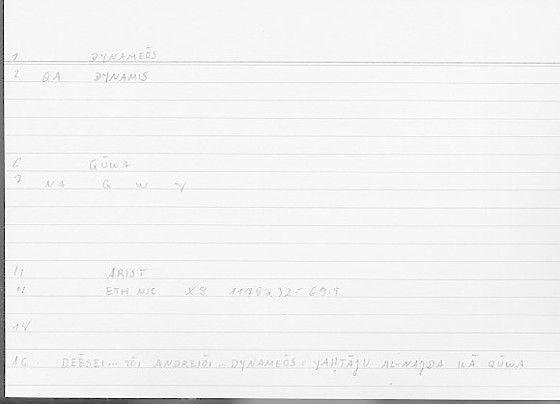 1 DYNAMEŌS
2 QA DYNAMIS
6 QŪWA
7 NA Q W Y
11 ARIST
12 ETH NIC X 8 1179a32 = 69.5
14
16 DEĒSEI... TŌI ANDREIŌI – DYNAMEŌS = YAḤTĀJU AL-NAJDA ILĀ QŪWA